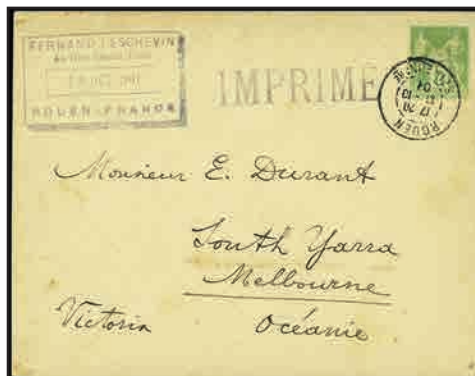 FERNAND LESCHEVIN
ROUEN-FRANCE
IMPRIMÉ
ROUEN
Monsieur E. Durant
South Yarra
Melbourne
Victoria Océanie